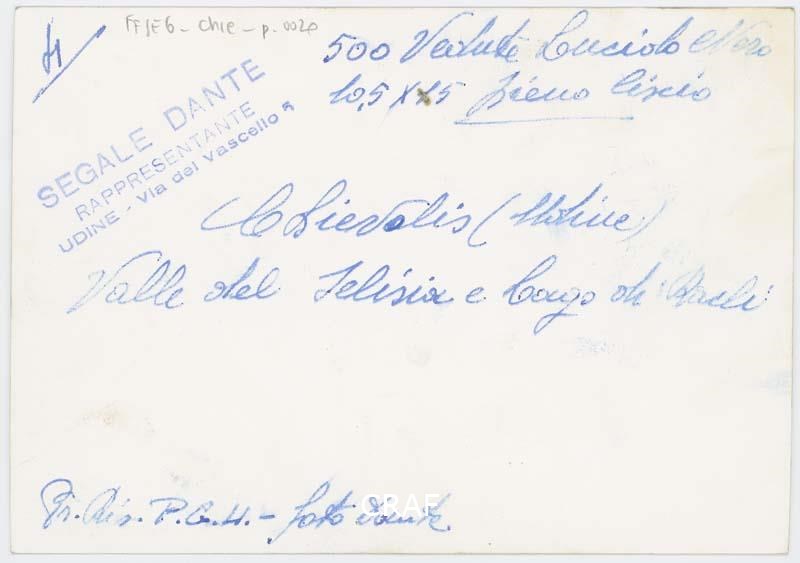 FFSEG - Chie - p. 0020
500 Vedute Lucido Nero
10,5 X 15 pieno liscio
SEGALE DANTE
RAPPRESENTANTE
UDINE - Via del Vascello 5
Chievolis (Udine)
Valle del Selisia e Lago di
P.C.H. - foto Dante
CRAF